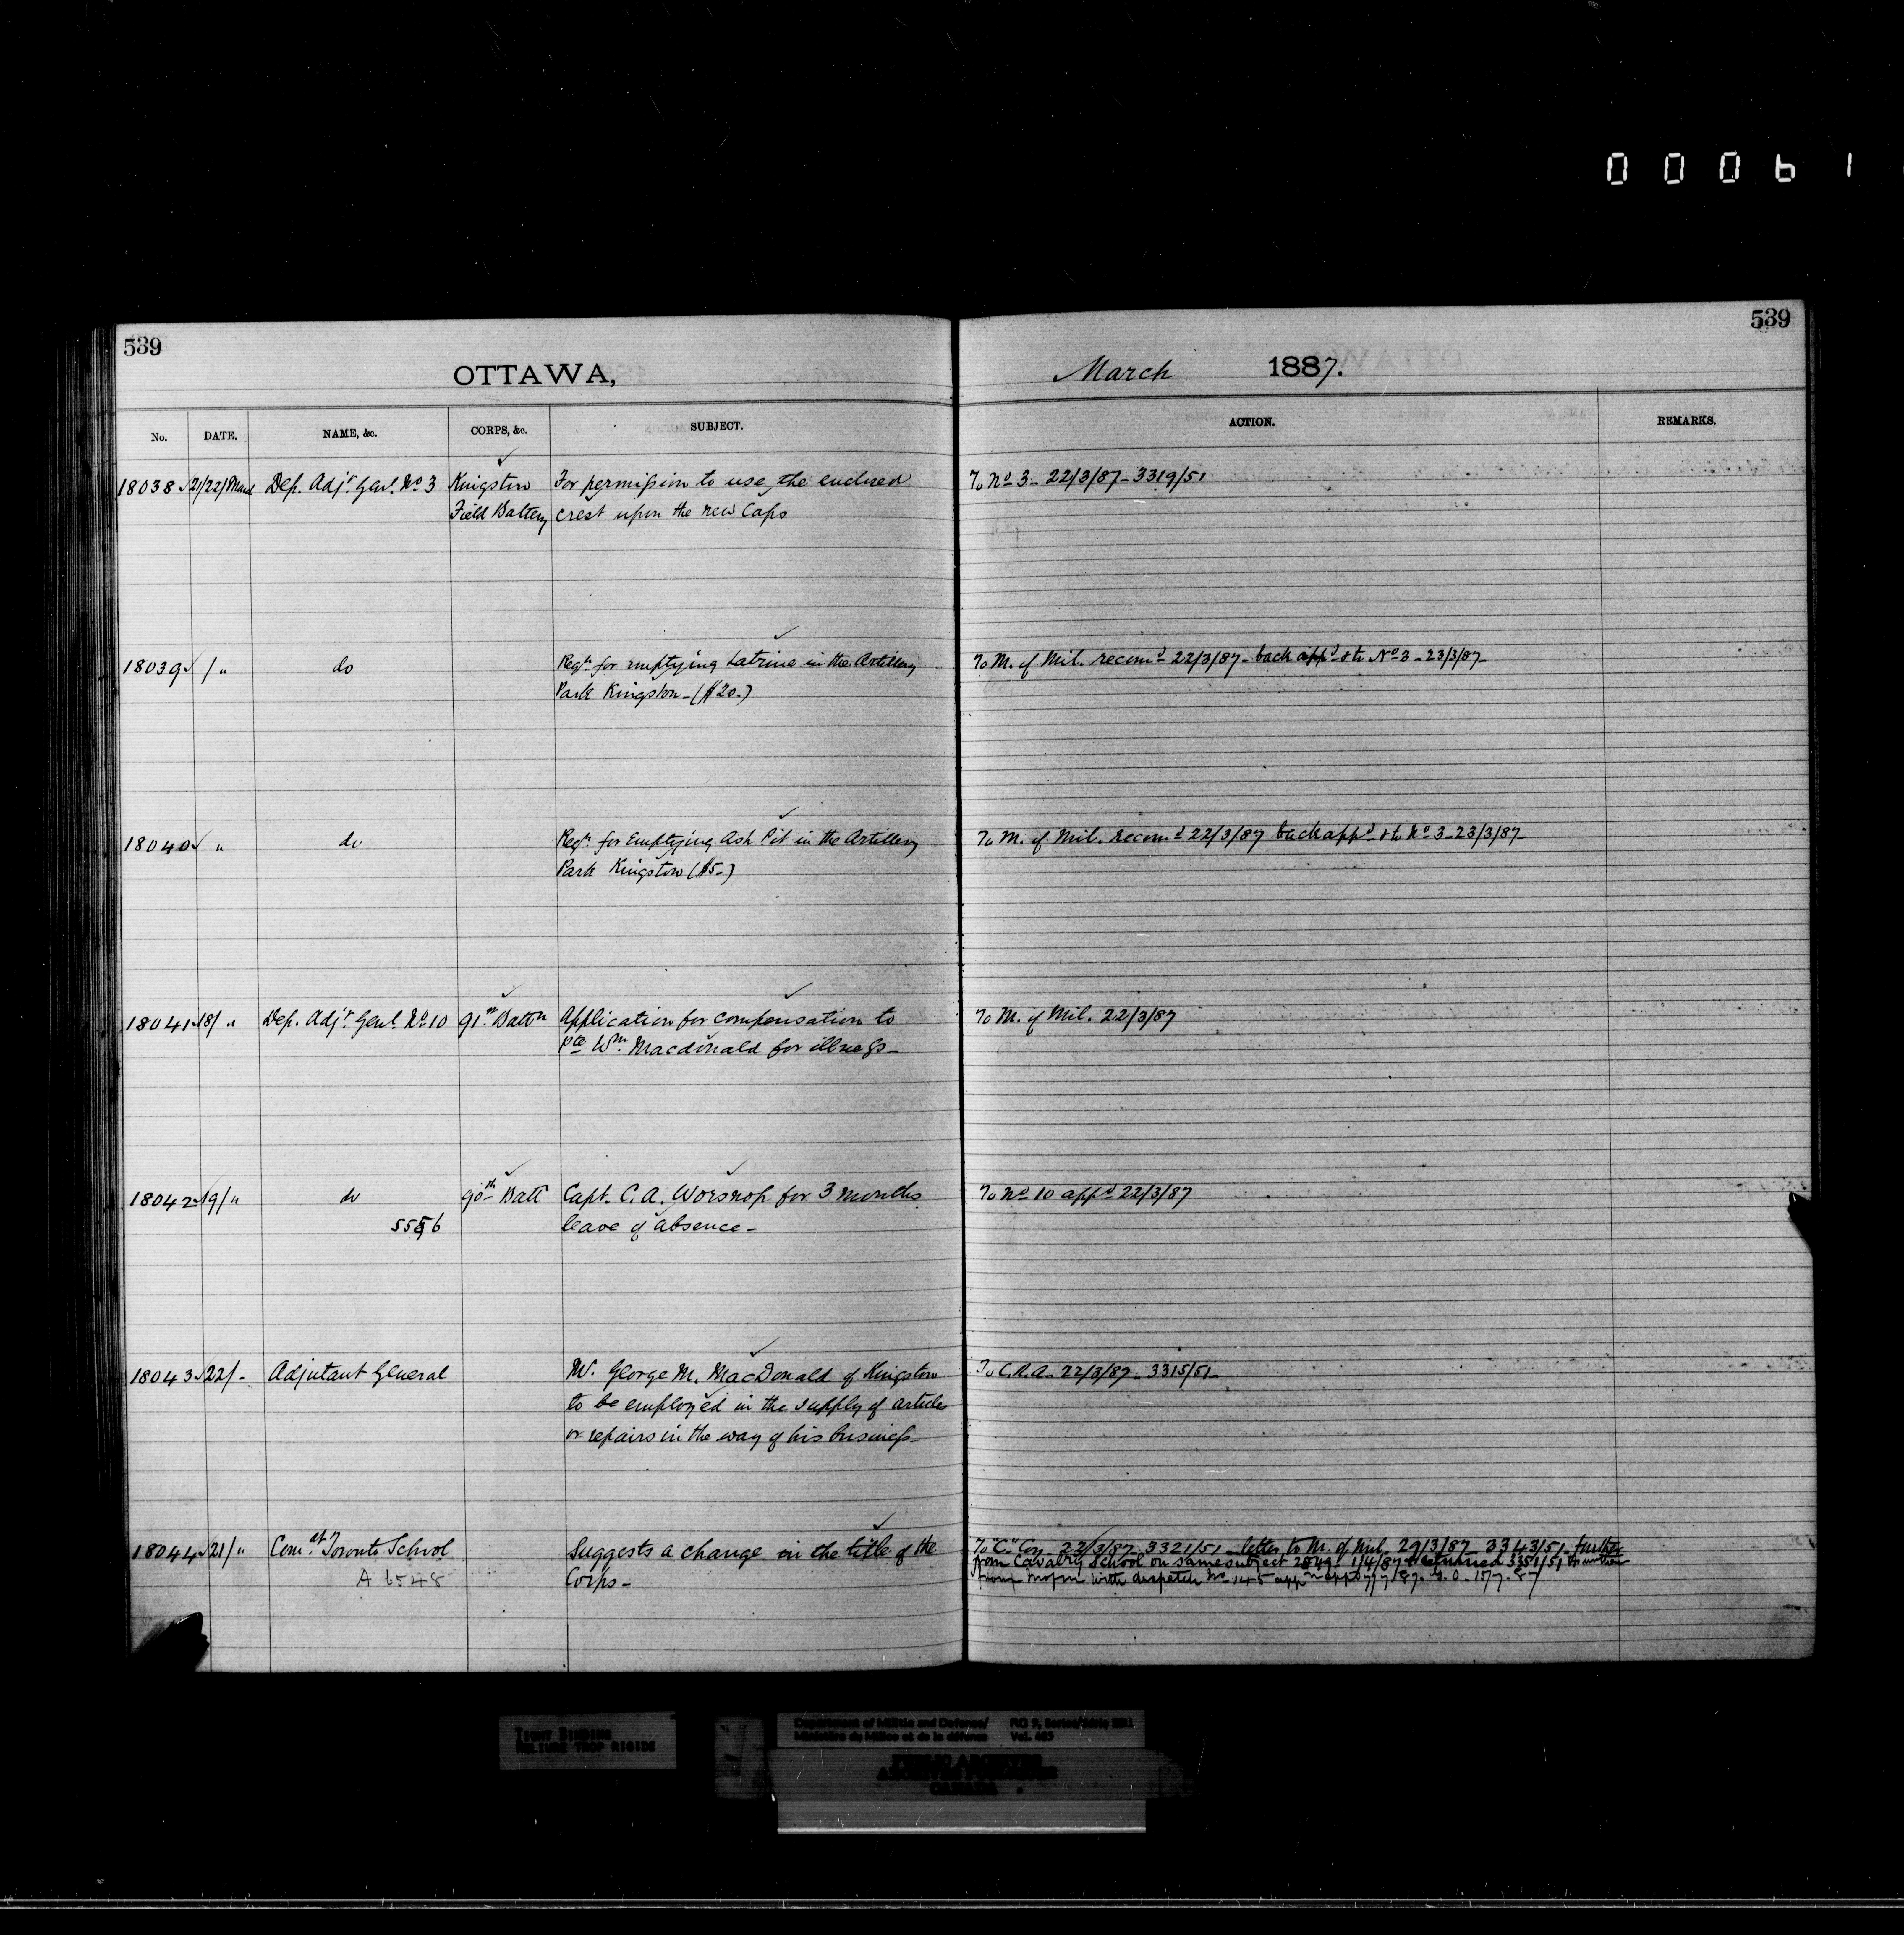 00061
539
539
OTTAWA,
March 1887.
No. DATE. NAME, &c. CORPS, &c. SUBJECT. ACTION. REMARKS.
18038 21/22/March Dep. Adjt. Genl. No 3 Kingston For permission to use the enclosed To No 3 - 22/3/87 - 3319/51
Field Battery crest upon the new Caps
18039 / " do Reqn. for emptying Latrine in the Artillery To M. of Mil. recomd 22/3/87 - back appd & to No 3 - 23/3/87 -
Park Kingston - ($20.)
18040 " do Reqn. for Emptying Ash Pit in the Artillery To M. of Mil. recomd 22/3/87 back appd & to No 3 - 23/3/87 -
Park Kingston ($5-)
18041 18/ " Dep. Adjt. Genl. No 10 91st Battn Application for compensation to To M. of Mil. 22/3/87
Pte Wm. Macdonald for illness -
18042 19/ " do 90th Batt Capt. C. A. Worsnop for 3 months To No 10 appd 22/3/87
leave of absence -
18043 22/ - Adjutant General Mr. George M. MacDonald of Kingston To C.R.A. 22/3/87 - 3315/51 -
to be employed in the supply of article
or repairs in the way of his business -
18044 21/ " Comt. Toronto School Suggests a change in the title of the To "C" Coy 22/3/87 3321/51 - letter to M. of Mil. 29/3/87 3343/51. further
A 6548 Corps - from Cavalry School on same subject 1/4/87 & returned 3351/51
with dispatch No 145
TIGHT BINDING
RELIURE TROP RIGIDE
Department of Militia and Defence/
Ministère du Milice et de la défence
RG 9, Series/Série
Vol.
PUBLIC ARCHIVES
ARCHIVES PUBLIQUES
CANADA